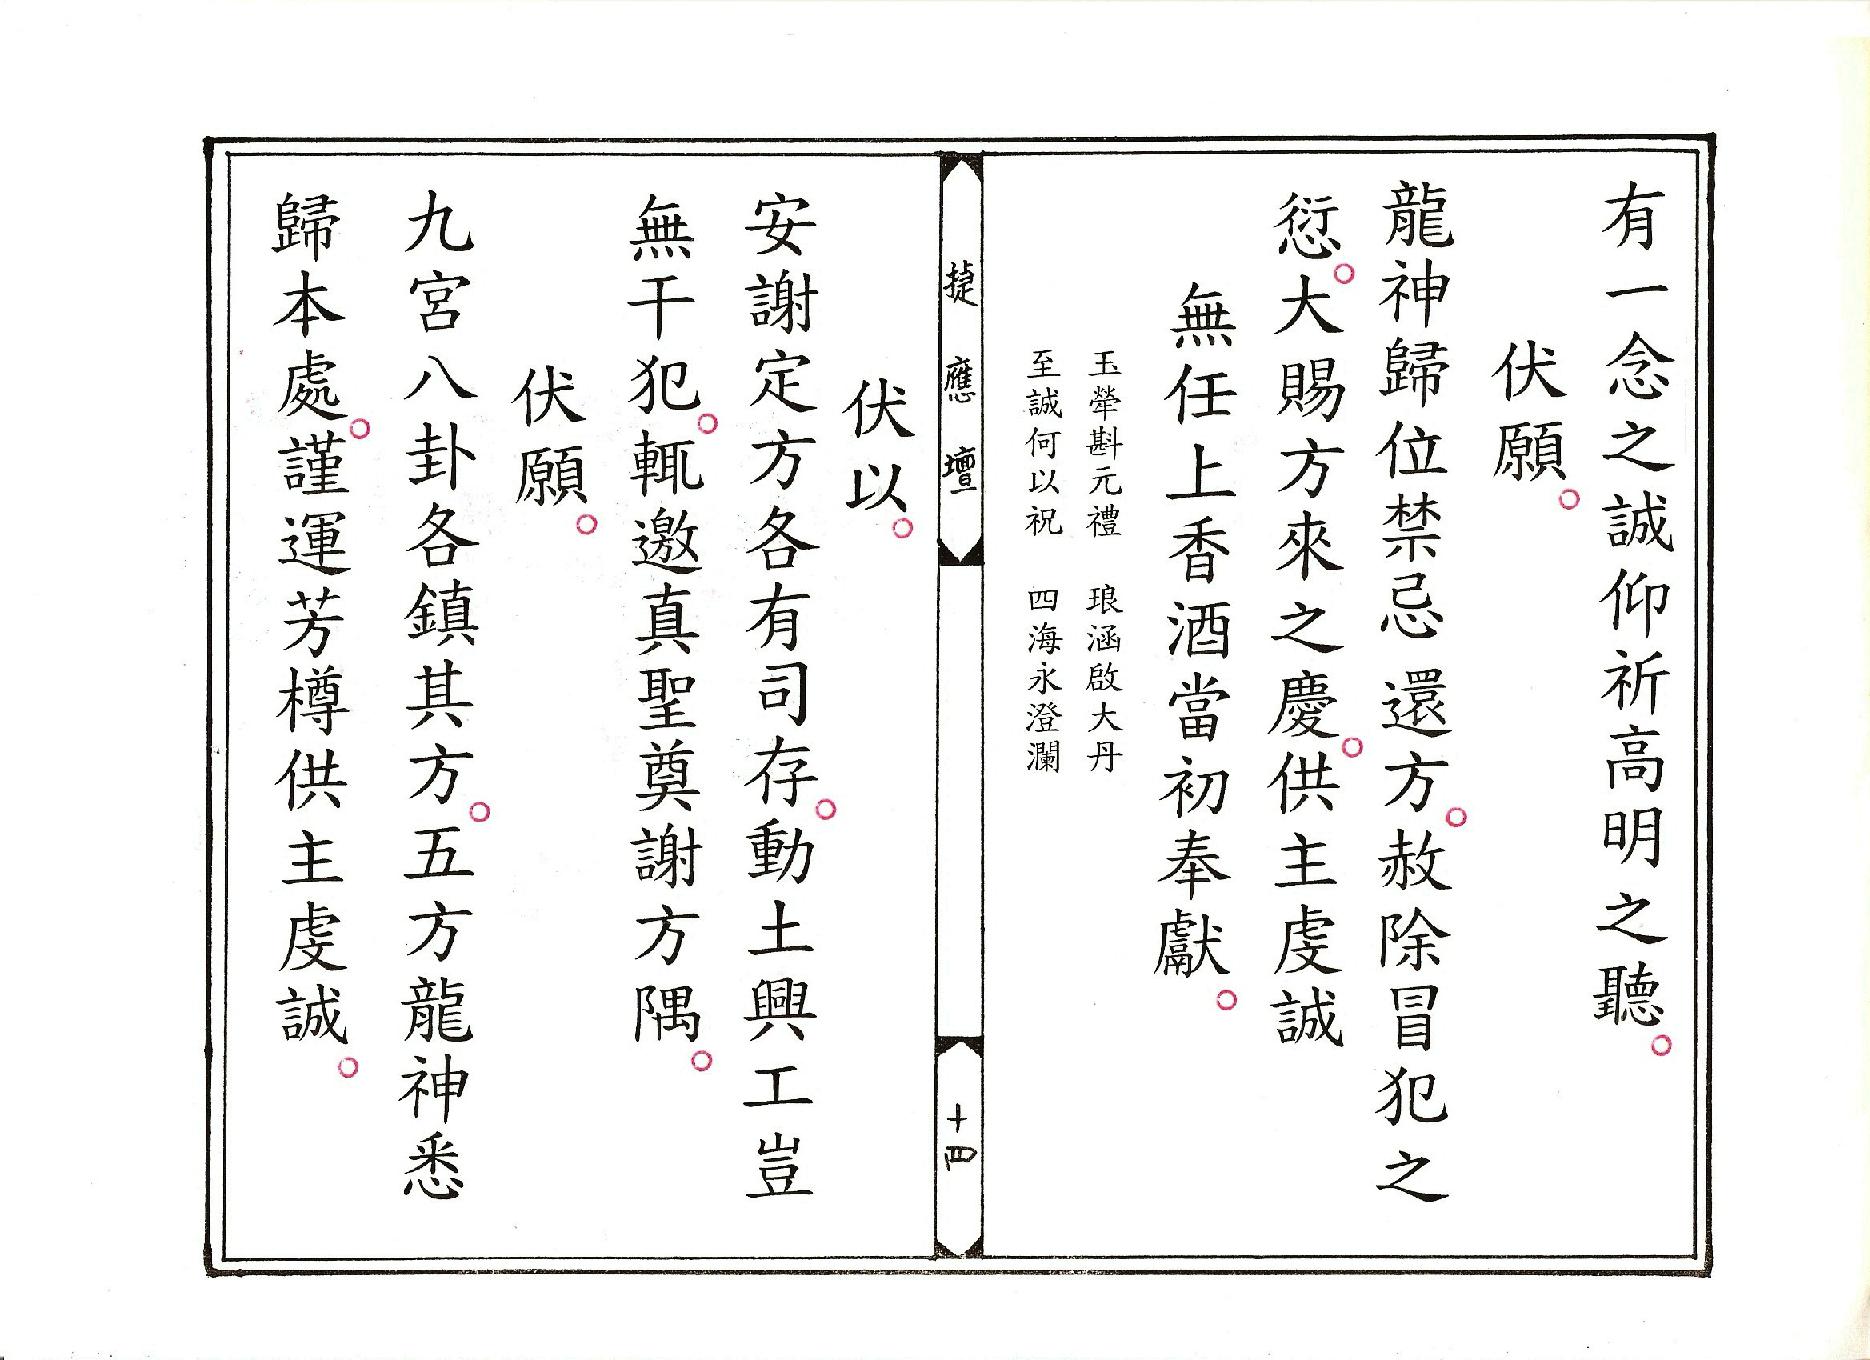 有一念之誠仰祈高明之聽。
伏願。
龍神歸位禁忌還方。赦除冒犯之
愆。大賜方來之慶。供主虔誠
無任上香酒當初奉獻。
玉犖斟元禮　琅涵啟大丹
至誠何以祝　四海永澄瀾
捷應壇
十四
伏以。
安謝定方各有司存。動土興工豈
無干犯。輒邀真聖奠謝方隅。
伏願。
九宮八卦各鎮其方。五方龍神悉
歸本處。謹運芳樽供主虔誠。